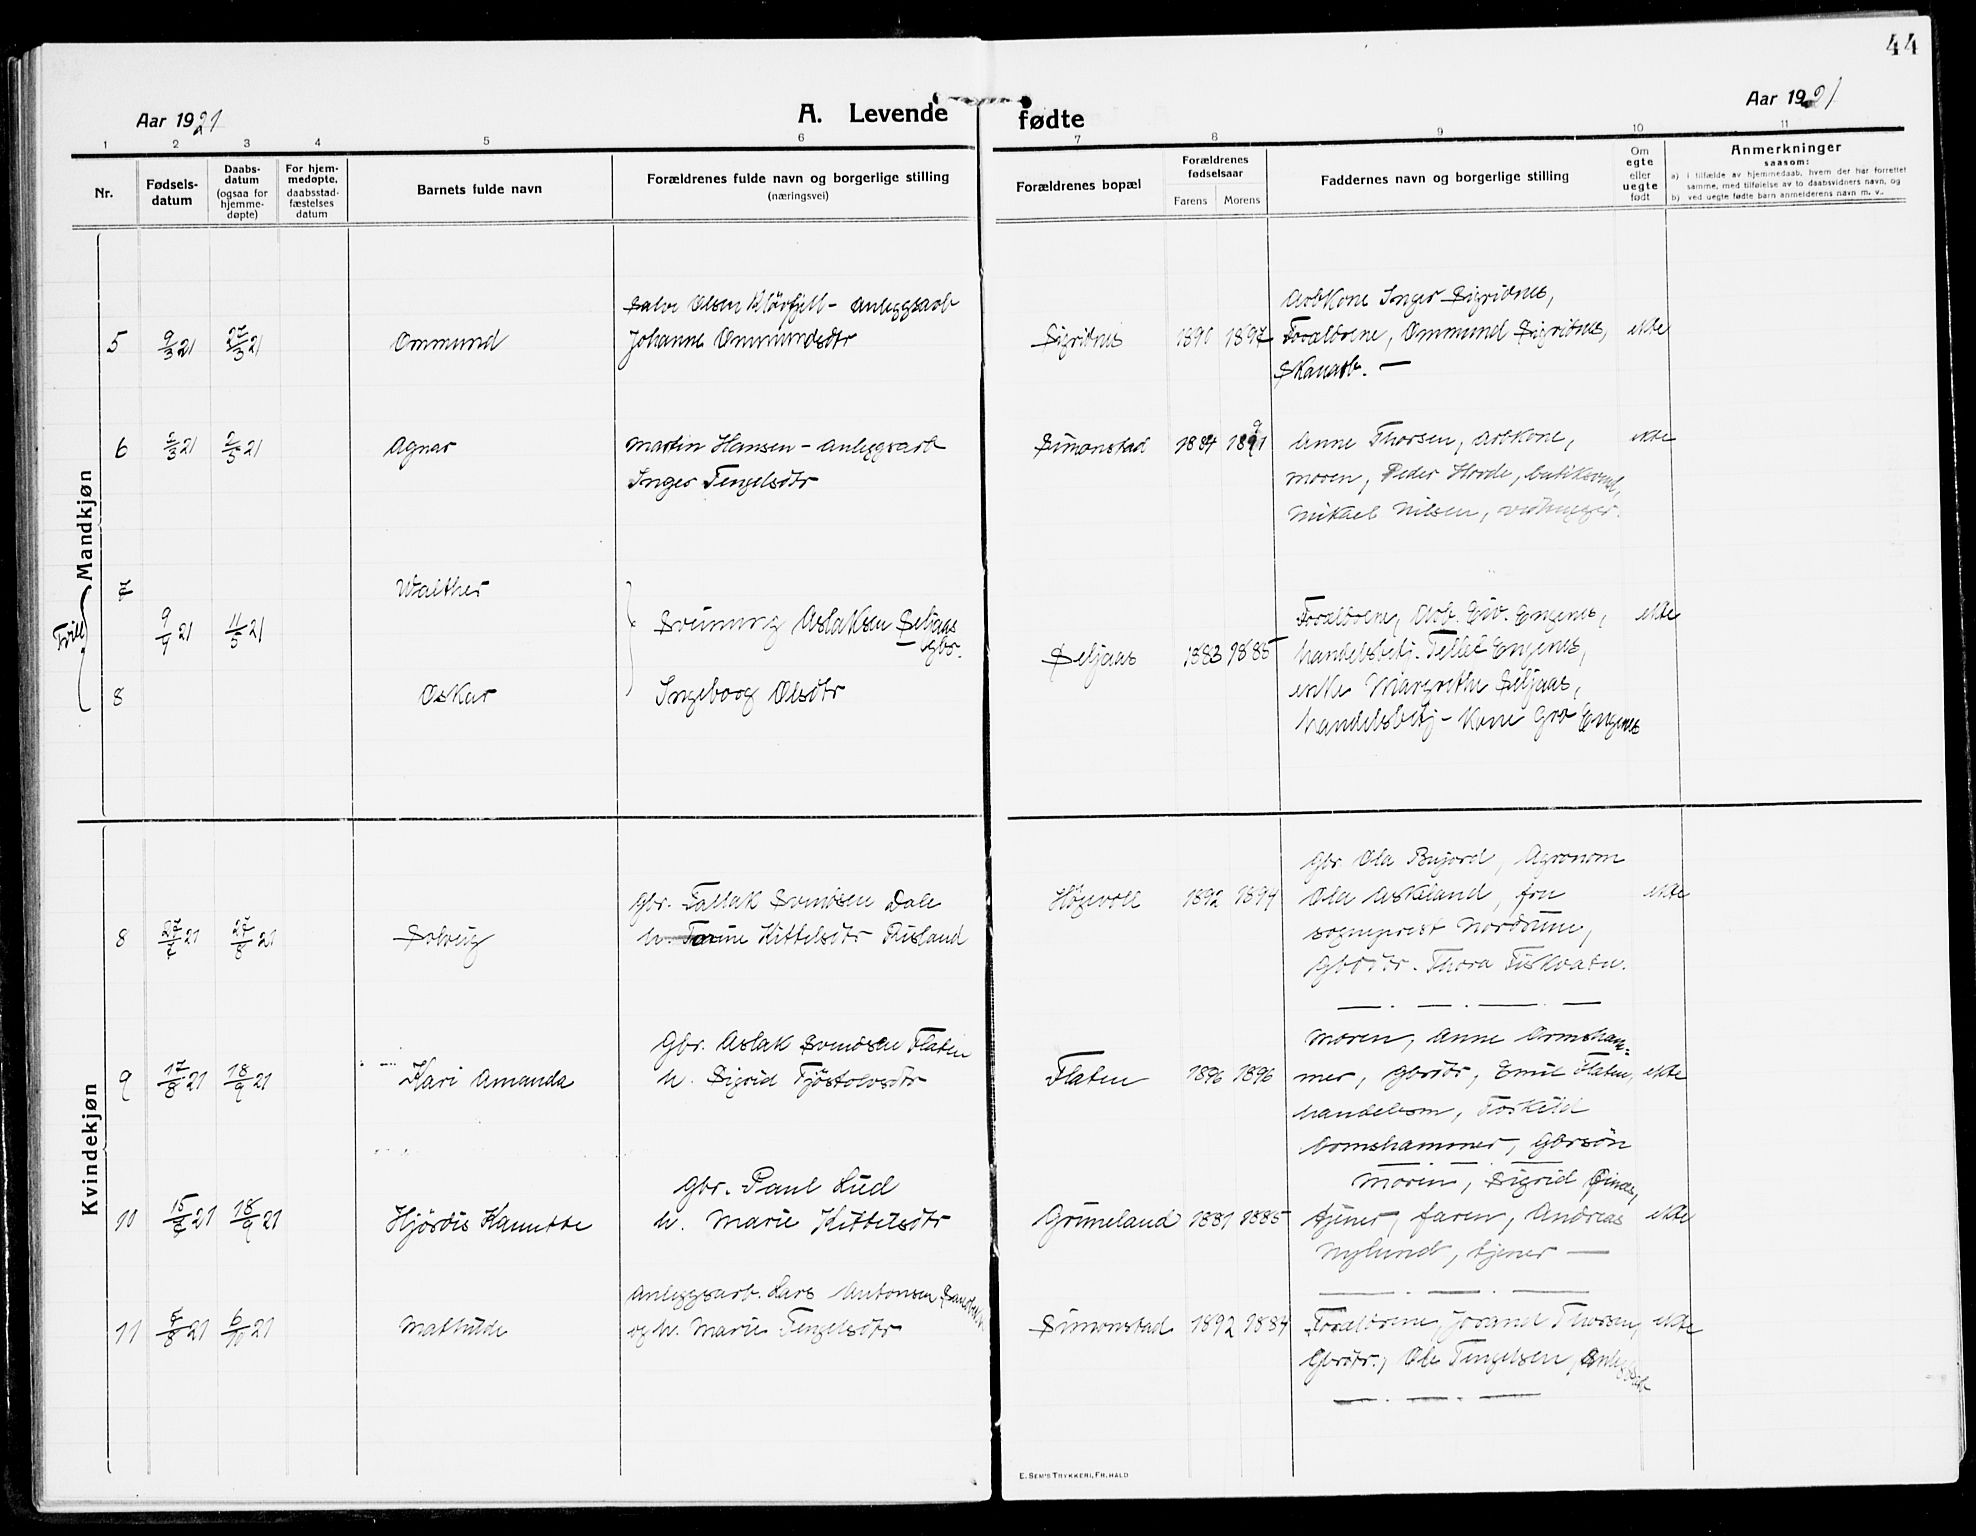 44
Aar 1921
A. Levende fødte
Aar 1921
1 2 3 4 5 6 7 8 9 10 11
Nr.
Fødsels-
datum
Daabs-
datum
(ogsaa for
hjemme-
døpte)
For hjem-
medøpte,
daabsstad-
fæstelses
datum
Barnets fulde navn
Forældrenes fulde navn og borgerlige stilling
(næringsvei)
Forældrenes bopæl
Forældrenes
fødselsaar
Farens Morens
Faddernes navn og borgerlige stilling
Om
egte
eller
uegte
født
Anmerkninger
saasom:
a) i tilfælde av hjemmedaab, hvem der har forrettet
samme, med tilføielse av to daabsvidners navn, og
b) ved uegte fødte barn anmelderens navn m. v..
Mandkjøn
5 9/3 21 27/3 21 Ommund
Salve Olsen Klörfjell - anleggsarb
Johanne Ommundsdtr
Sigridnes 1890 1897
Arbkone Inger Sigridnes,
Foreldrene, Ommund Sigridnes,
ekte
6 2/3 21 2/5 21 Agnar
Martin Hansen - anleggsarb
Inger Tengelsdtr
Simonstad 1884 1891
Anne Thorsen, arbkone,
moren, Peder Horde,
Mikael Nilsen, vedhugger.
ekte
Tvill
7 Walther
9/4 21 11/5 21
Sveinung Aslaksen Seljaas
- gbr.
8 Oskar
Ingeborg Olsdtr
Seljaas 1883 1885
Foreldrene, Arb. Eiv. Engenes,
handelsbetj. Tellef Engenes,
enke Margrethe Seljaas,
handelsbetj - kone Gro Engenes
ekte
Kvindekjøn
8 27/7 21 27/8 21 Solveig
Gbr. Tallak Svendsen Dale
h. Torine Kittelsdtr Risland
Högevoll 1892 1894
Gbr. Ola Bujord, Agronom
Ola Askeland, fru
sogneprest Nordrum,
Gbrdtr. Thora Fiskvatn.
ekte
9 17/8 21 18/9 21 Kari Amanda
Gbr. Aslak Svendsen Flaten
h. Sigrid Tjöstolvsdtr
Flaten 1896 1896
Moren, Anne Ormsham-
mer, gbrdtr, Emil Flaten,
handelsm, Torkild
Ormshammer, Gbrsön
ekte
10 15/8 21 18/9 21 Hjördis Kanutte
Gbr. Paul Lud
h. Marie Kittelsdtr
Grimeland 1881 1885
Moren, Sigrid
tjener, faren, Andreas
Nylund, tjener —
ekte
11 8/8 21 6/11 21 Mathilde
Anleggsarb. Lars Antonsen Sandbek
og h. Marie Tengelsdtr
Simonstad 1892 1884
Foreldrene, Jorand Thorsen,
Gbrdtr., Ole Tengelsen, Anleggsarb
ekte
E. SEM'S TRYKKERI, FR.HALD